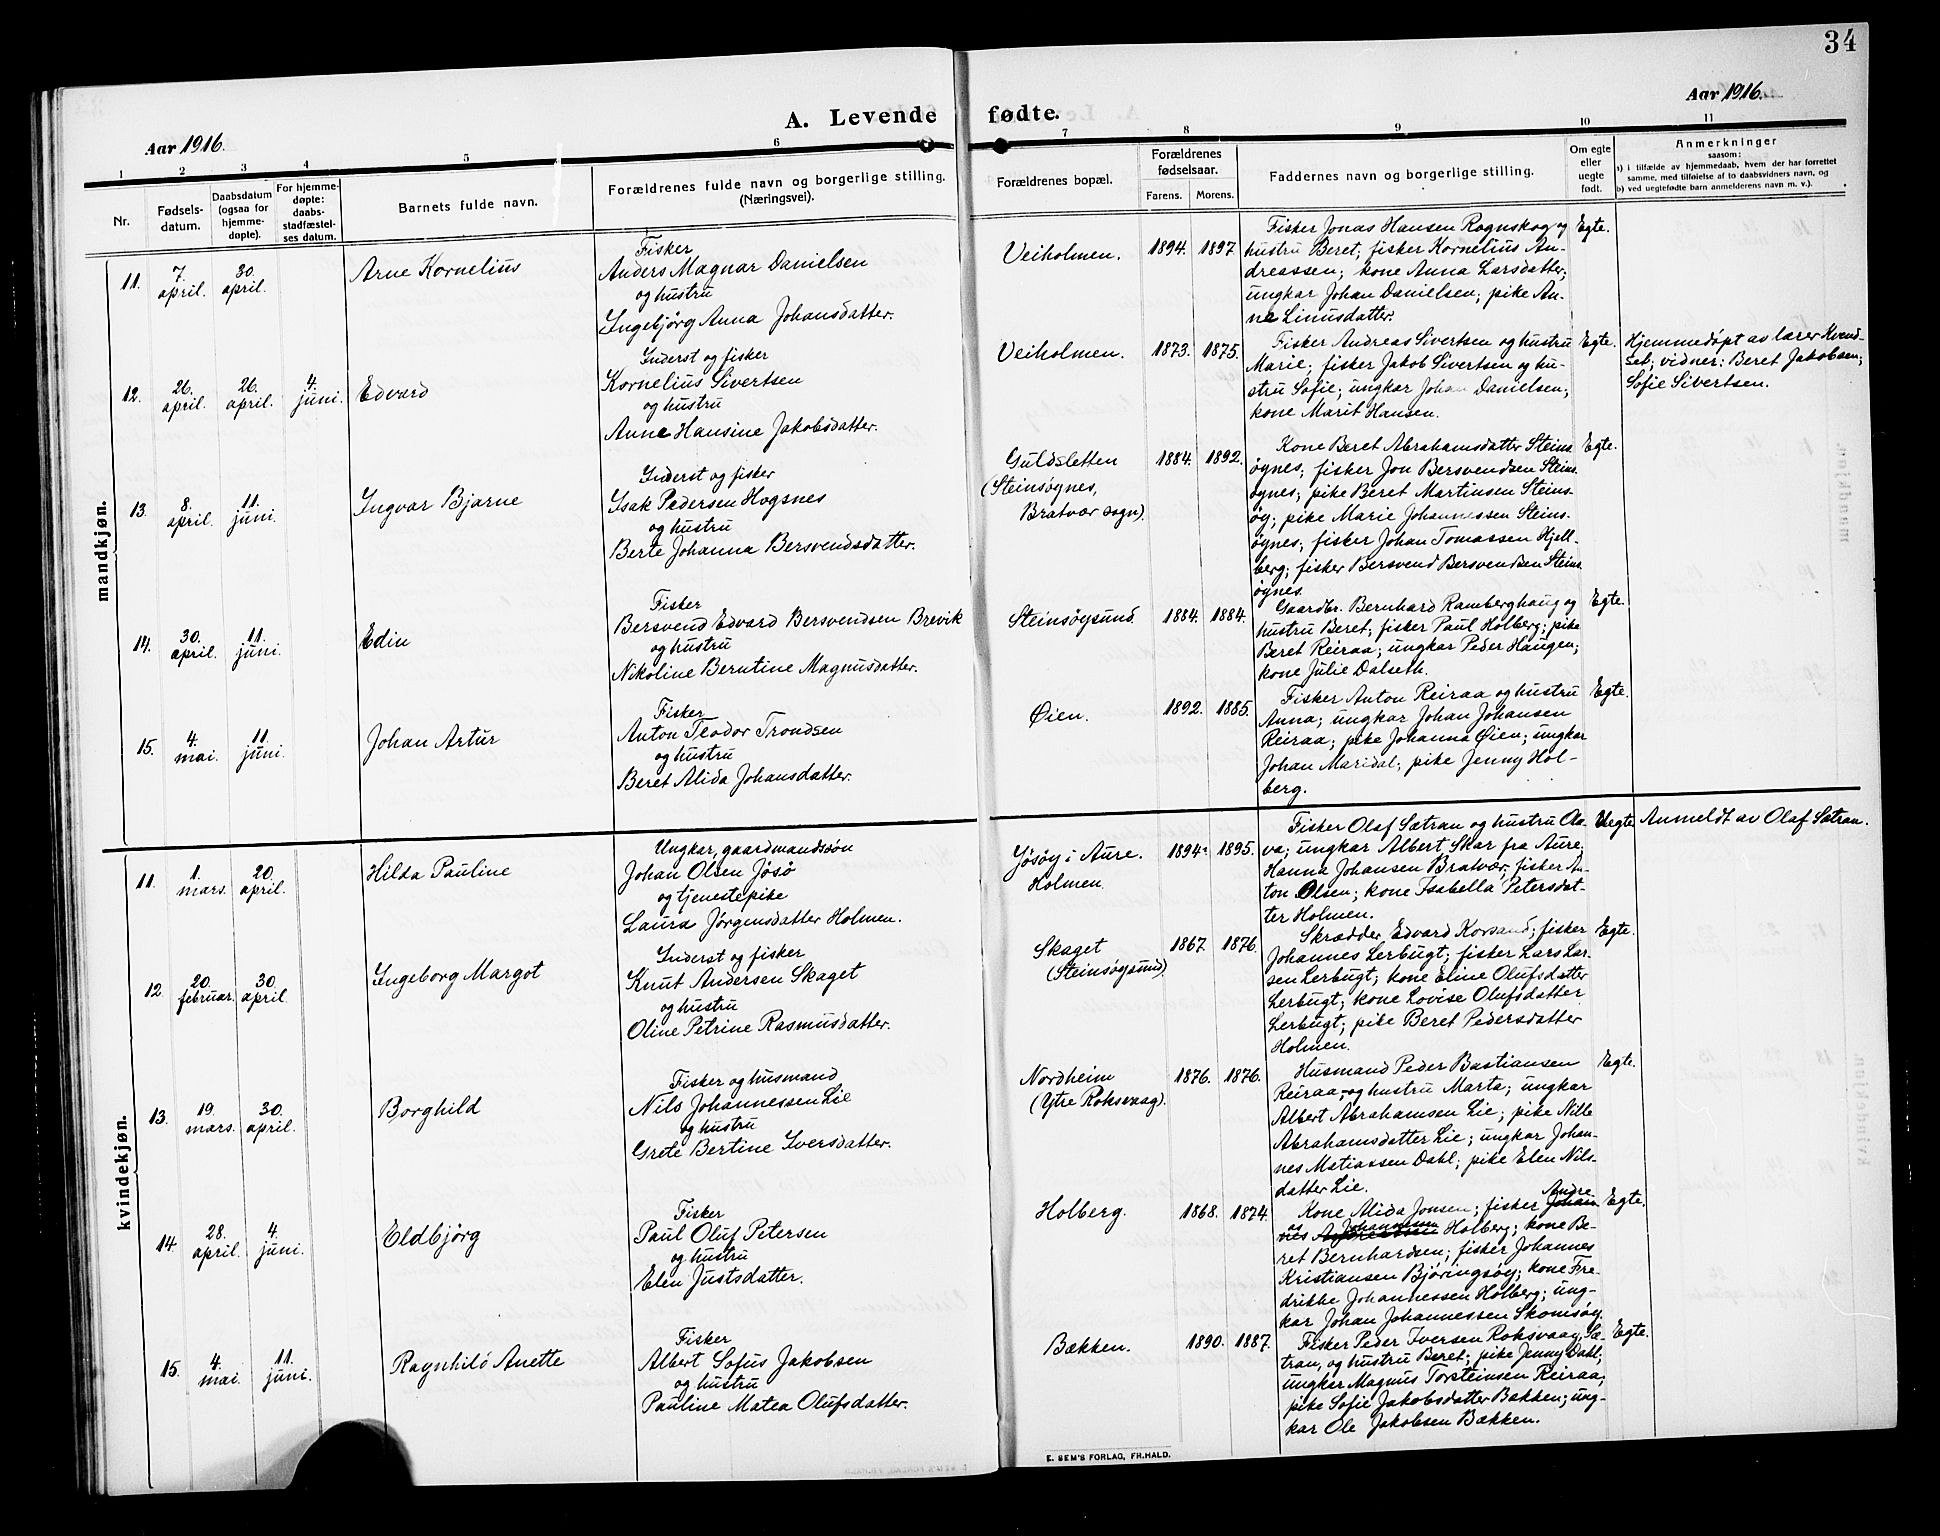 34
Aar 1916.
Aar 1916.
A. Levende fødte.
1 2 3 4 5 6 7 8 9 10 11
Nr.
Fødsels-
datum.
Daabsdatum
(ogsaa for
hjemme-
døpte).
For hjemme-
døpte:
daabs-
stadfæstel-
ses datum.
Barnets fulde navn.
Forældrenes fulde navn og borgerlige stilling.
(Næringsvei).
Forældrenes bopæl.
Forældrenes
fødselsaar.
Farens. Morens.
Faddernes navn og borgerlige stilling.
Om egte
eller
uegte
født.
Anmerkninger
saasom:
a) i tilfælde av hjemmedaab, hvem der har forrettet
samme, med tilføielse af to daabsvidners navn, og
b) ved uegtefødte barn anmelderens navn m. v.).
mandkjøn.
11. 7. april. 30. april. Arne Kornelius
Fisker
Anders Magnar Danielsen
og hustru
Ingebjørg Anna Johansdatter.
Veiholmen. 1894. 1897.
Fisker Jonas Hansen Rognskog og
hustru Beret; fisker Kornelius An-
dreassen; kone Anna Larsdatter;
ungkar Johan Danielsen; pike An-
ne Linusdatter.
Egte.
12. 26. april. 26. april. 4. juni. Edvard
Inderst og fisker
Kornelius Sivertsen
og hustru
Anne Hansine Jakobsdatter.
Veiholmen. 1873. 1875.
Fisker Andreas Sivertsen og hustru
Marie; fisker Jakob Sivertsen og hu-
stru Sofie; ungkar Johan Danielsen;
kone Marit Hansen.
Egte.
Hjemmedøpt av lærer Kvend-
set; vidner: Beret Jakobsen;
Sofie Sivertsen.
13. 8. april. 11. juni. Ingvar Bjarne
Inderst og fisker
Isak Pedersen Hogsnes
og hustru
Berte Johanna Bersvendsdatter.
Guldsletten
(Steinsøynes,
Bratvær sogn).
1884. 1892.
Kone Beret Abrahamsdatter Steins-
øynes; fisker Jon Bersvendsen Steins-
øynes; pike Beret Martinsen Steins-
øy; pike Marie Johannessen Steins-
øynes; fisker Johan Tomassen Hjell-
berg; fisker Bersvend Bersvendsen Steins-
øynes.
Egte.
14. 30. april. 11. juni. Edin
Fisker
Bersvend Edvard Bersvendsen Brevik
og hustru
Nikoline Berntine Magnusdatter.
Steinsøysund. 1884. 1884.
Gaardbr. Bernhard Ramberghaug og
hustru Beret; fisker Paul Holberg; pike
Beret Reiraa; ungkar Peder Haugen;
kone Julie Dalseth.
Egte.
15. 4. mai. 11. juni. Johan Artur
Fisker
Anton Teodor Trondsen
og hustru
Beret Alida Johansdatter.
Øien. 1892. 1885.
Fisker Anton Reiraa og hustru
Anna; ungkar Johan Johansen
Reiraa; pike Johanna Øien; ungkar
Johan Maridal; pike Jenny Hol-
berg.
Egte.
kvindekjøn.
11. 1. mars. 20. april. Hilda Pauline
Ungkar, gaardmandssøn
Johan Olsen Jøsø
og tjenestepike
Laura Jørgensdatter Holmen.
Jøsøy i Aure.
Holmen.
1894. 1895.
Fisker Olaf Sætran og hustru Ola-
va; ungkar Albert Skar fra Aure;
Hanna Johansen Bratvær; fisker An-
ton Olsen; kone Isabella Petersdat-
ter Holmen.
Uegte.
Anmeldt av Olaf Sætran.
12. 20. februar. 30. april. Ingeborg Margot
Inderst og fisker
Knut Andersen Skaget
og hustru
Oline Petrine Rasmusdatter.
Skaget
(Steinsøysund).
1867. 1876.
Skrædder Edvard Korsand; fisker
Johannes Lerbugt; fisker Lars Lar-
sen Lerbugt; kone Eline Olufsdatter
Lerbugt; kone Lovise Olufsdatter
Lerbugt; pike Beret Pedersdatter
Holmen.
Egte.
13. 19. mars. 30. april. Borghild
Fisker og husmand
Nils Johannessen Lie
og hustru
Grete Bertine Iversdatter.
Nordheim
(Ytre Roksvaag).
1876. 1876.
Husmand Peder Bastiansen
Reiraa, og hustru Marta; ungkar
Albert Abrahamsen Lie; pike Nille
Abrahamsdatter Lie; ungkar Johan-
nes Matiassen Dahl; pike Elen Nils-
datter Lie.
Egte.
14. 28. april. 4. juni. Eldbjørg
Fisker
Paul Oluf Petersen
og hustru
Elen Justsdatter.
Holberg. 1868. 1874.
Kone Alida Jonsen; fisker Andre
as Johannesen Holberg; kone Be-
ret Bernhardsen; fisker Johannes
Kristiansen Bjøringsøy; kone Fre-
drikke Johannessen Holberg; ung-
kar Johan Johannessen Skomsøy.
Egte.
15. 4. mai. 11. juni. Ragnhild Anette
Fisker
Albert Sofus Jakobsen
og hustru
Pauline Matea Olufsdatter.
Bækken. 1890. 1887.
Fisker Peder Iversen Roksvaag, Sæ-
tran, og hustru Beret; pike Jenny Dahl;
ungkar Magnus Torsteinsen Reiraa;
pike Sofie Jakobsdatter Bækken; ung-
kar Ole Jakobsen Bækken.
Egte.
E. SEM'S FORLAG, FR.HALD.